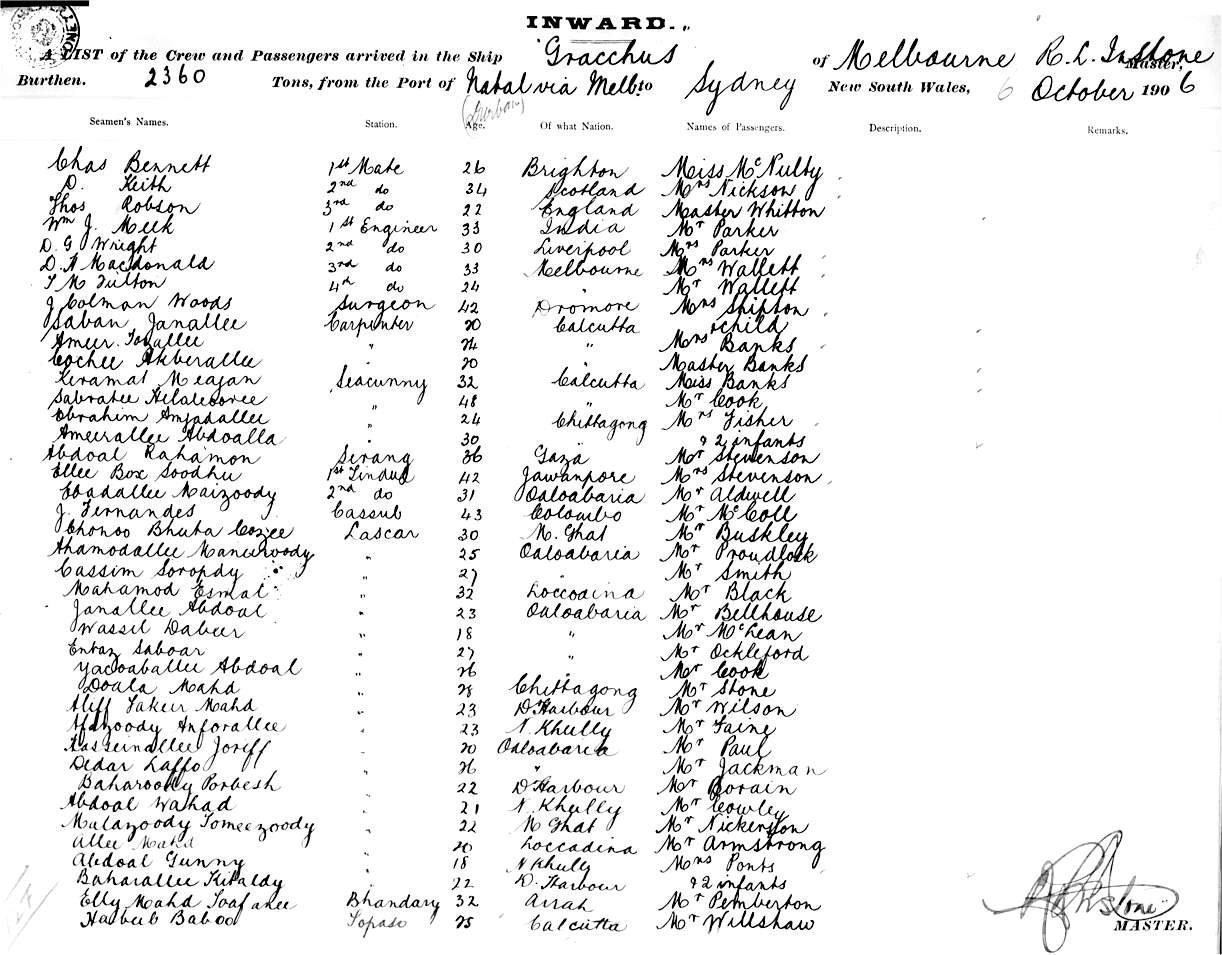 INWARD.
A LIST of the Crew and Passengers arrived in the Ship Gracchus of Melbourne R. L. Instone Master,
Burthen. 2360 Tons, from the Port of Natal via Melb. to Sydney New South Wales, 6 October 1906
(Durban)
Seamen's Names. Station. Age. Of what Nation. Names of Passengers. Description. Remarks.
Chas Bennett 1st Mate 26 Brighton Miss McNulty
D. Keith 2nd do 34 Scotland Mrs Nickson
Thos Robson 3rd do 22 England Master Whitton
Wm J. Meek 1st Engineer 33 India Mr Parker
D. G Wright 2nd do 30 Liverpool Mrs Parker
D. N Macdonald 3rd do 33 Melbourne Mrs Wallett
T M Fulton 4th do 24 " Mr Wallett
J Colman Woods Surgeon 42 Dromore Mrs Shipton
Saban Janallee Carpenter 20 Calcutta + child
Ameer " 24 " Mrs Banks
Cochee Akberallee " 20 " Master Banks
Keramat Meajan Seacunny 32 Calcutta Miss Banks
Sabratee " 48 " Mr Cook
Ebrahim Amjadallee " 24 Chittagong Mrs Fisher
Ameerallee Abdoalla " 30 & 2 infants
Abdoal Rahamon Serang 36 Gaza Mr Stevenson
Ellee Box Soodhu 1st Tindul 42 Jawanpore Mrs Stevenson
Ebadallee Maizoody 2nd do 31 Oaloabaria Mr Aldwell
J. Fernandes Cassub 43 Colombo Mr McColl
Chonoo Bhuta Cozee Lascar 30 M. Ghat Mr Buskley
Ahamodallee " 25 Oaloabaria Mr Proudlock
Cassim Soropdy " 27 " Mr Smith
Mahamod Esmal " 32 Loccadina Mr Black
Janallee Abdoal " 23 Oaloabaria Mr Bellhouse
Wassil Dabeer " 18 " Mr McLean
Entaz Saboar " 27 " Mr Ockleford
Yacoaballee Abdoal " 26 " Mr Cook
Doala Mahd " 28 Chittagong Mr Stone
Aliff Fakeer Mahd " 23 D. Harbour Mr Wilson
Afazoody Anforallee " 23 N. Khully Mr Faine
Kasseinallee Joriff " 20 Oaloabaria Mr Paul
Dedar Laffo " 26 " Mr Jackman
Baharoolly Porbesh " 22 D. Harbour Mr Borain
Abdoal Wahad " 21 N. Khully Mr Cowley
Mulazoody Tomeezoody " 22 M Ghat Mr Nickerson
Allee Mahd " 20 Loccadina Mr Armstrong
Abdoal Gunny " 18 N Khully Mrs Ponts
Baharallee Kitaldy " 22 D. Harbour & 2 infants
Elly Mahd Bhandary 32 Arrah Mr Pemberton
Habeeb Baboo Topaso 25 Calcutta Mr Willshaw
R L Instone
MASTER.